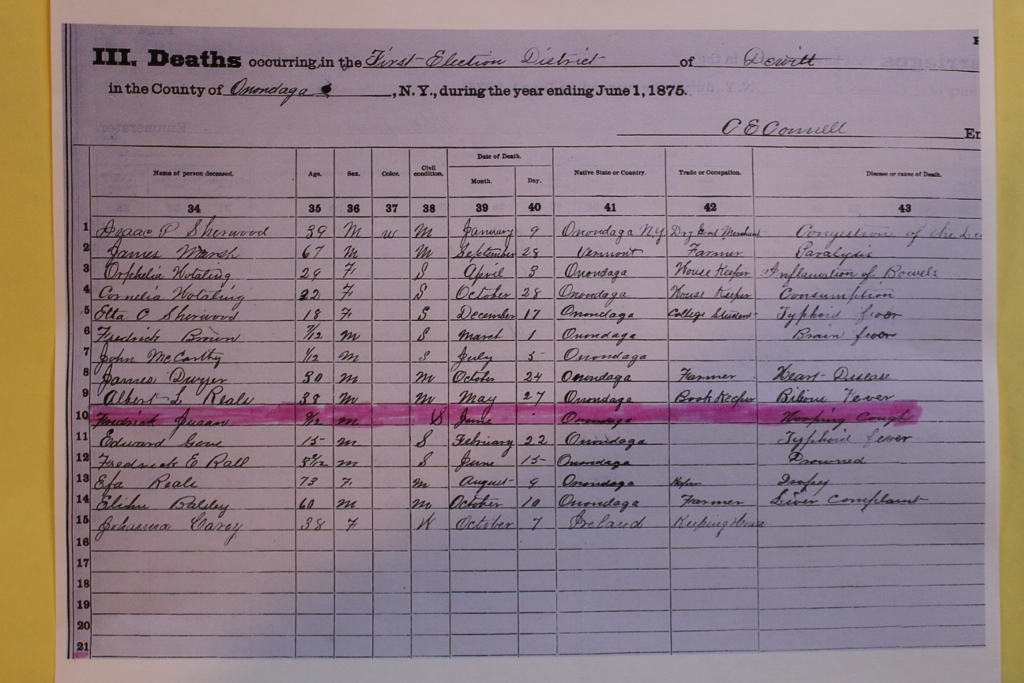 III. Deaths occurring in the First Election District of Dewitt
in the County of Onondaga , N.Y., during the year ending June 1, 1875.
C E Connell
Date of Death.
Name of person deceased. Age. Sex. Color. Civil condition. Month. Day. Native State or Country. Trade or Occupation. Disease or cause of Death.
34 35 36 37 38 39 40 41 42 43
1 Isaac P Sherwood 39 M w M January 9 Onondaga N.Y. Congestion of the
2 James Marsh 67 M M September 28 Vermont Farmer Paralysis
3 Orphelia Hotaling 29 F S April 3 Onondaga House Keeper Inflamation of Bowels
4 Cornelia Hotaling 22 F S October 28 Onondaga House Keeper Consumption
5 Etta C Sherwood 18 F S December 17 Onondaga College Student Typhoid fever
6 Fredrick Brown 7/12 M S 1 Onondaga Brain fever
7 John McCarthy 1/12 M S July 5 Onondaga
8 James Dwyer 30 M M October 24 Onondaga Farmer Heart Disease
9 Albert Reals 38 M M May 27 Onondaga Book Keeper Fever
10 Fredrick M S June Onondaga Hooping Cough
11 Edward 15 M S February 22 Onondaga Typhoid fever
12 Fredrick E Rall M S June 15 Onondaga Drowned
13 Efa Reals 73 F M August 9 Onondaga
14 60 M M October 10 Onondaga Farmer Liver Complaint
15 Johanna Carey 38 F W October 7 Ireland Keeping House
16
17
18
19
20
21